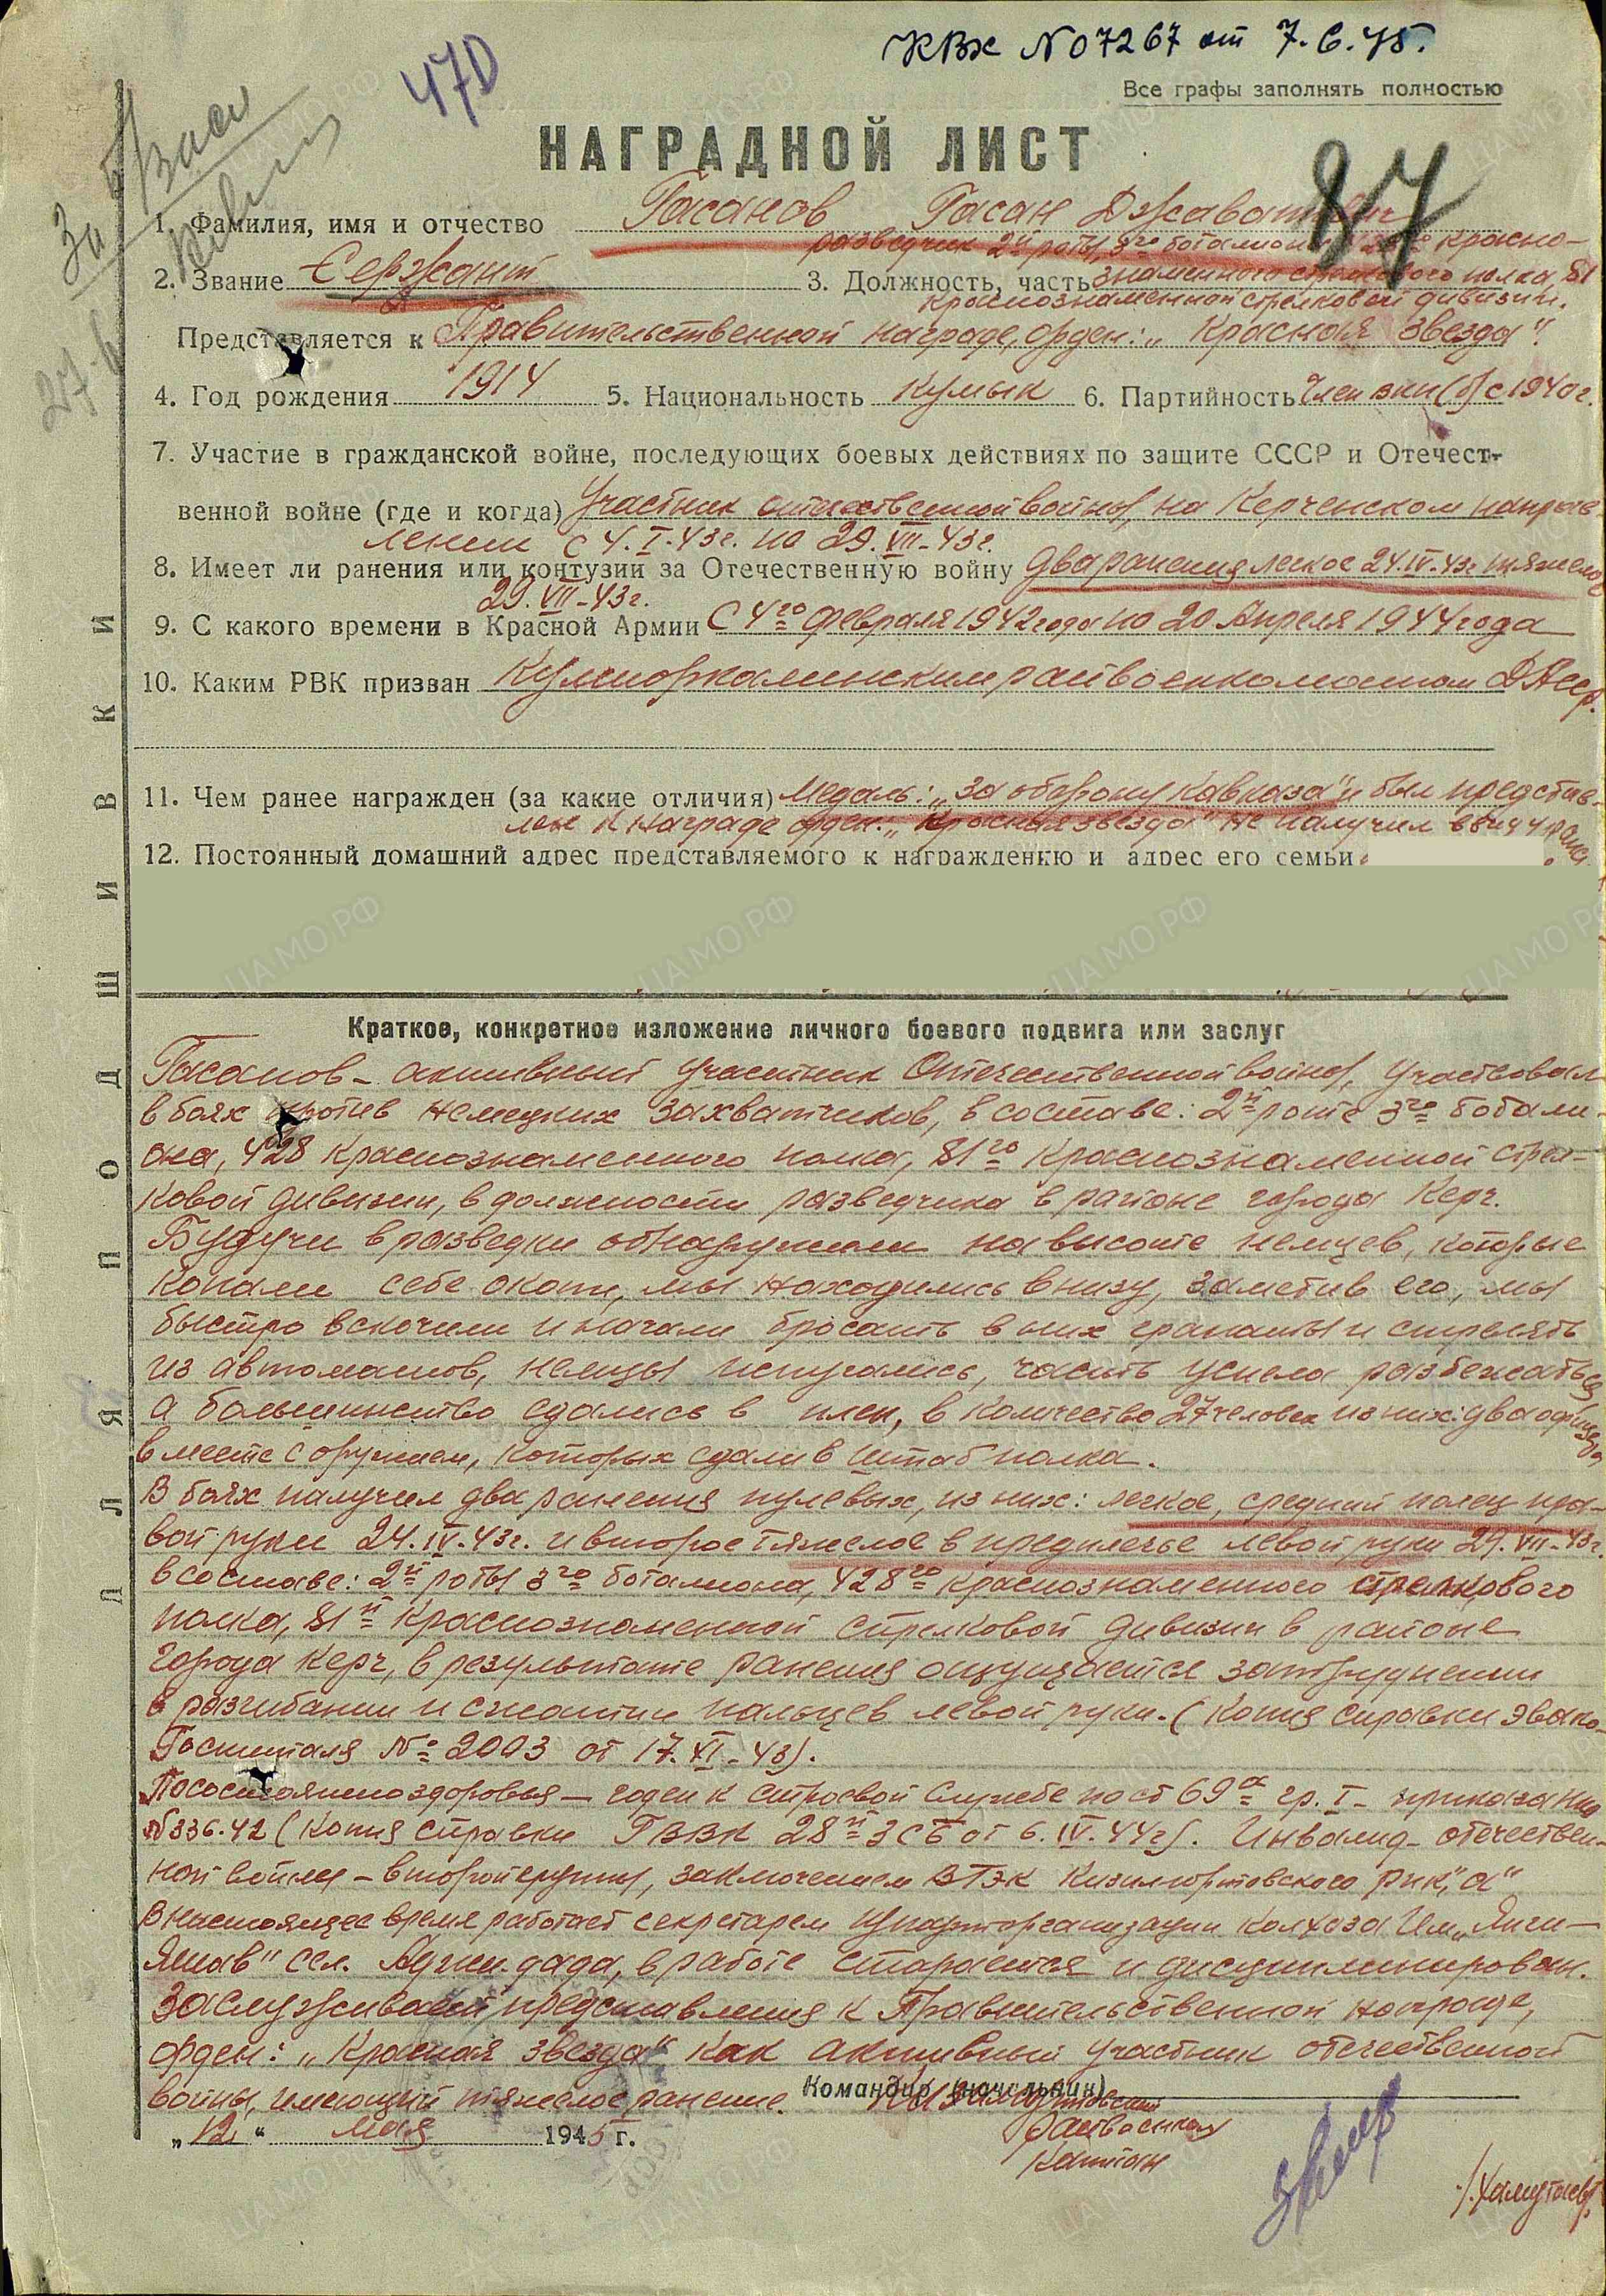 КВХ №07267 от 7.6.45.
470
Все графы заполнять полностью
НАГРАДНОЙ ЛИСТ
87
За
27.6
1. Фамилия, имя и отчество Гасанов Гасан Джаватович
разведчик 2й роты, 3го баталиона красно-
2. Звание Сержант 3. Должность, часть знаменного стрелкового полка, 81
краснознаменной стрелковой дивизии.
Представляется к Правительственной награде, орден: „Красная Звезда".
4. Год рождения 1914 5. Национальность Кумык 6. Партийность Член вкп(б) с 1940г.
7. Участие в гражданской войне, последующих боевых действиях по защите СССР и Отечест-
венной войне (где и когда) Участник отечественной войны, на Керченском направ-
лении с 4.I.43г. по 29.VII-43г.
8. Имеет ли ранения или контузии за Отечественную войну два ранения легкое 24.IV-43г. и тяжелое
29.VII-43г.
9. С какого времени в Красной Армии С 4го февраля 1942 года по 20 Апреля 1944 года
10. Каким РВК призван Кумторкалинским райвоенкоматом ДАсср.
11. Чем ранее награжден (за какие отличия) Медаль: „За оборону Кавказа" и был представ-
лен к награде орден: „Красная звезда" не получил ввиду
12. Постоянный домашний адрес представляемого к награждению и адрес его семьи
Краткое, конкретное изложение личного боевого подвига или заслуг
Гасанов - активный участник Отечественной войны, Участвовал
в боях против немецких захватчиков, в составе: 2й роте 3го батали-
она, 428 краснознаменного полка, 81го Краснознаменной стрел-
ковой дивизии, в должности разведчика в районе города Керч.
Будучи в разведки обнаружили на высоте немцев, которые
копали себе окопи, мы находились внизу, заметив его, мы
быстро вскочили и начали бросать в них гранаты и стрелять
из автоматов, немцы испугались, часть успела разбежаться
а большинство сдались в плен, в количестве 27 человек из них: два офицера
вместе с оружием, которых сдали в Штаб полка.
В боях получил два ранения пулевых, из них: легкое, средний палец пра-
вой руки 24.IV.43г. и второе тяжелое в предплечье левой руки 29.VII-43г.
в составе: 2й роты 3го баталиона, 428го краснознаменного стрелкового
полка, 81й Краснознаменной стрелковой дивизии в районе
города Керч, в результате ранения ощущается затруднении
в разгибании и сжатии пальцев левой руки. (Копия справки эвако-
Госпиталя № 2003 от 17.XI-43).
По состоянию здоровья - годен к строевой Службе по ст 69а гр. I- приказа нко
№336.42 (Копия справки ГВВК 28й ЗСБ от 6.IV.44г). Инвалид отечествен-
ной войны - второй группы, заключением ВТЭК Кизилюртовского рик,„а"
В настоящее время работает секретарем парторганизации колхоза Им „Янги-
Яшав" сел. Аджидада, в работе старается и дисциплинирован.
Заслуживает представления к Правительственной награде,
орден: „Красная звезда" как активный участник отечественной
войны, имеющий тяжелое ранение. Командир (начальник) Кизилюртовский
Райвоенком
„12" мая 1945 г.
Капитан
ПОДШИВКИ
ДЛЯ